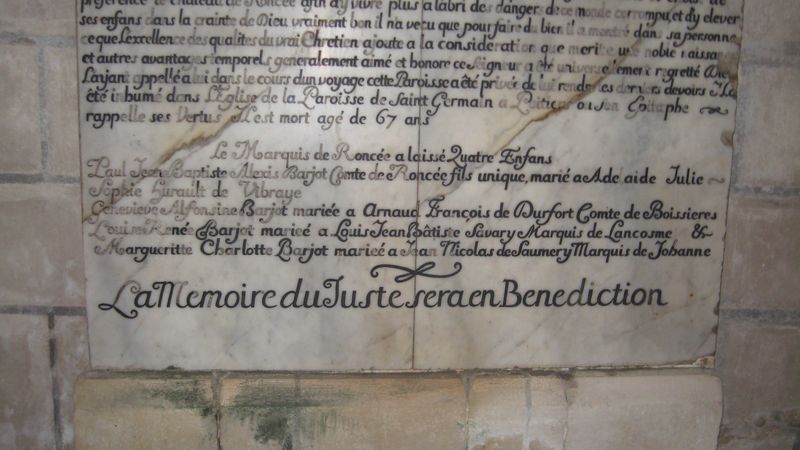 preference le chateau de Roncée afin d'y vivre plus a labri des dangers de ce monde corrompu, et dy elever
ses enfans dans la crainte de Dieu vraiment bon il na vecu que pour faire du bien il a montré dans sa personne
ce que Lexcellence des qualites du vrai Chretien ajoute a la consideration que merite une noble naissance
et autres avantages temporels generalement aimé et honoré ce Seigneur a été universellement regretté Dieu
Layant appellé a lui dans le cours dun voyage cette Paroisse a été privée de lui rendre les derniers devoirs Il a
été inhumé dans L'Eglise de la Paroisse de Saint Germain a Poitiers ou son Epitaphe
rappelle ses Vertus Il est mort agé de 67 ans
Le Marquis de Roncée a laissé Quatre Enfans
Paul Jean Baptiste Alexis Barjot Comte de Roncée fils unique, marié a Adelaide Julie
Sophie Hurault de Vibraye
Genevieve Alfonsine Barjot mariée a Arnaud François de Durfort Comte de Boissieres
Louise Renée Barjot mariéé a Louis Jean Bâtiste Savary Marquis de Lancosme &
Margueritte Charlotte Barjot mariéé a Jean Nicolas de Saumery Marquis de Johanne
La Memoire du Juste sera en Benediction